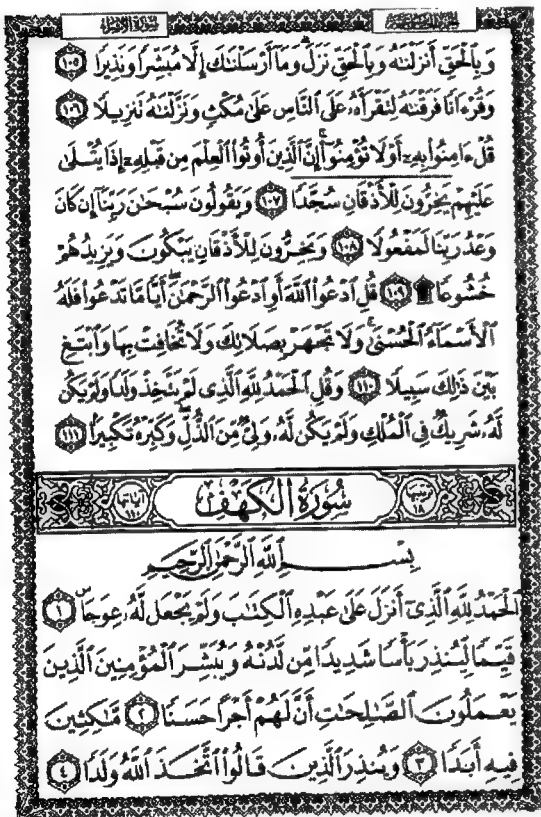 سورة الإسراء الجزء الخامس عشر
وَبِالْحَقِّ أَنزَلْنَٰهُ وَبِالْحَقِّ نَزَلَ ۗ وَمَآ أَرْسَلْنَٰكَ إِلَّا مُبَشِّرًا وَنَذِيرًا ١٠٥
وَقُرْءَانًا فَرَقْنَٰهُ لِتَقْرَأَهُۥ عَلَى ٱلنَّاسِ عَلَىٰ مُكْثٍ وَنَزَّلْنَٰهُ تَنزِيلًا ١٠٦
قُلْ ءَامِنُوا۟ بِهِۦٓ أَوْ لَا تُؤْمِنُوٓا۟ ۚ إِنَّ ٱلَّذِينَ أُوتُوا۟ ٱلْعِلْمَ مِن قَبْلِهِۦٓ إِذَا يُتْلَىٰ
عَلَيْهِمْ يَخِرُّونَ لِلْأَذْقَانِ سُجَّدًا ١٠٧ وَيَقُولُونَ سُبْحَٰنَ رَبِّنَآ إِن كَانَ
وَعْدُ رَبِّنَا لَمَفْعُولًا ١٠٨ وَيَخِرُّونَ لِلْأَذْقَانِ يَبْكُونَ وَيَزِيدُهُمْ
خُشُوعًا ۩ ١٠٩ قُلِ ٱدْعُوا۟ ٱللَّهَ أَوِ ٱدْعُوا۟ ٱلرَّحْمَٰنَ ۖ أَيًّا مَّا تَدْعُوا۟ فَلَهُ
ٱلْأَسْمَآءُ ٱلْحُسْنَىٰ ۚ وَلَا تَجْهَرْ بِصَلَاتِكَ وَلَا تُخَافِتْ بِهَا وَٱبْتَغِ
بَيْنَ ذَٰلِكَ سَبِيلًا ١١٠ وَقُلِ ٱلْحَمْدُ لِلَّهِ ٱلَّذِى لَمْ يَتَّخِذْ وَلَدًا وَلَمْ يَكُن
لَّهُۥ شَرِيكٌ فِى ٱلْمُلْكِ وَلَمْ يَكُن لَّهُۥ وَلِىٌّ مِّنَ ٱلذُّلِّ ۖ وَكَبِّرْهُ تَكْبِيرًۢا ١١١
ترتيبها ١٨ سُورَةُ الكَهْفِ آياتها ١١٠
بِسْمِ ٱللَّهِ ٱلرَّحْمَٰنِ ٱلرَّحِيمِ
ٱلْحَمْدُ لِلَّهِ ٱلَّذِىٓ أَنزَلَ عَلَىٰ عَبْدِهِ ٱلْكِتَٰبَ وَلَمْ يَجْعَل لَّهُۥ عِوَجَا ۜ ١
قَيِّمًا لِّيُنذِرَ بَأْسًا شَدِيدًا مِّن لَّدُنْهُ وَيُبَشِّرَ ٱلْمُؤْمِنِينَ ٱلَّذِينَ
يَعْمَلُونَ ٱلصَّٰلِحَٰتِ أَنَّ لَهُمْ أَجْرًا حَسَنًا ٢ مَّٰكِثِينَ
فِيهِ أَبَدًا ٣ وَيُنذِرَ ٱلَّذِينَ قَالُوا۟ ٱتَّخَذَ ٱللَّهُ وَلَدًا ٤